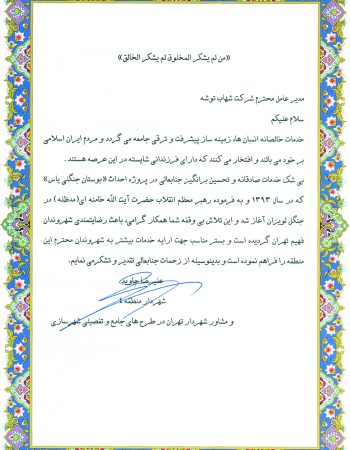 «من لم یشکر المخلوق لم یشکر الخالق»
مدیر عامل محترم شرکت شهاب توشه
سلام علیکم
خدمات خالصانه انسان ها، زمینه ساز پیشرفت و ترقی جامعه می گردد و مردم ایران اسلامی
بر خود می بالند و افتخار می کنند که دارای فرزندانی شایسته در این عرصه هستند .
بی شک خدمات صادقانه و تحسین برانگیز جنابعالی در پروژه احداث «بوستان جنگلی یاس»
که در سال ۱۳۹۳ و به فرموده رهبر معظم انقلاب حضرت آیت الله خامنه ای(مدظله) در
جنگل لویزان آغاز شد و این تلاش بی وقفه شما همکار گرامی، باعث رضایتمندی شهروندان
فهیم تهران گردیده است و بستر مناسب جهت ارایه خدمات بیشتر به شهروندان محترم این
منطقه را فراهم نموده است و بدینوسیله از زحمات جنابعالی تقدیر و تشکر می نمایم.
علیرضا جاوید
شهردار منطقه ٤
و مشاور شهردار تهران در طرح های جامع و تفصیلی شهرسازی